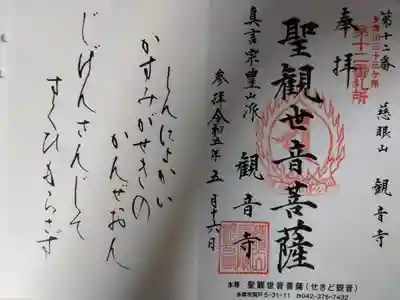 第十二番 慈眼山 観音寺
奉拝
多摩川三十三ヶ所
第十二番札所
聖観世音菩薩
真言宗豊山派 観音寺
参拝令和五年五月十六日
本尊 聖観世音菩薩(せきど観音)
多摩市関戸 5-31-11 ☎042-375-7422
しんによかい
かすみがせきの
かんぜおん
じげんさんじて
すくひもらさず